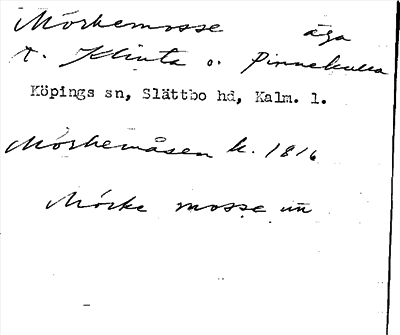 Mörkemosse äga
t. Klinta o. Pinnekulla
Köpings sn, Slättbo hd, Kalm. l.
Mörkemåsen k. 1816
Mörke mosse un